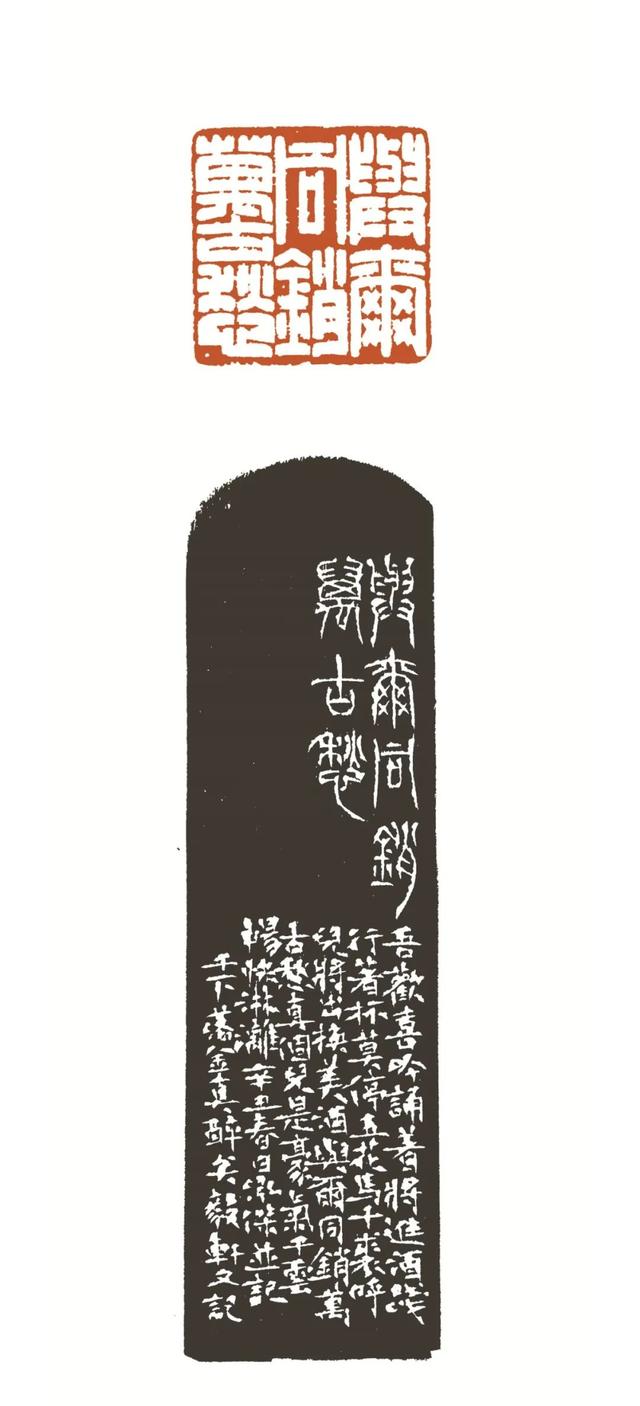 與爾
同銷
萬古愁
與爾同銷
萬古愁
吾歡喜吟誦著將進酒踐
行著杯莫停五花馬千裘呼
兒將出換美酒與爾同銷萬
古愁真個兒是豪氣干雲
暢快淋漓辛丑春日並記
千下落金真醉矣毅軒又記